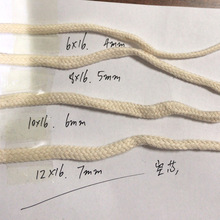 6x16. 4mm
8x16. 5mm
10x16. 6mm
12x16. 7mm 空芯